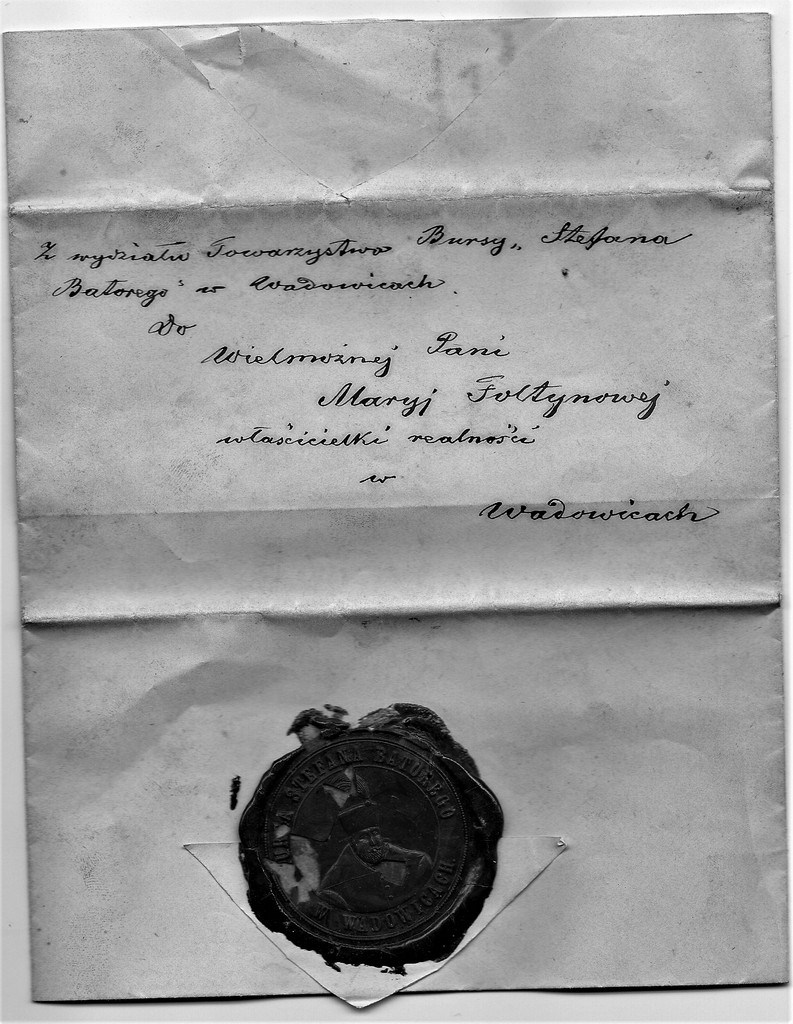 Z wydziału Towarzystwa Bursy „Stefana
Batorego" w Wadowicach.
Do
Wielmożnej Pani
Maryj Foltynowej
właścicielki realności
w
Wadowicach
BURSA STEFANA BATOREGO
W WADOWICACH.